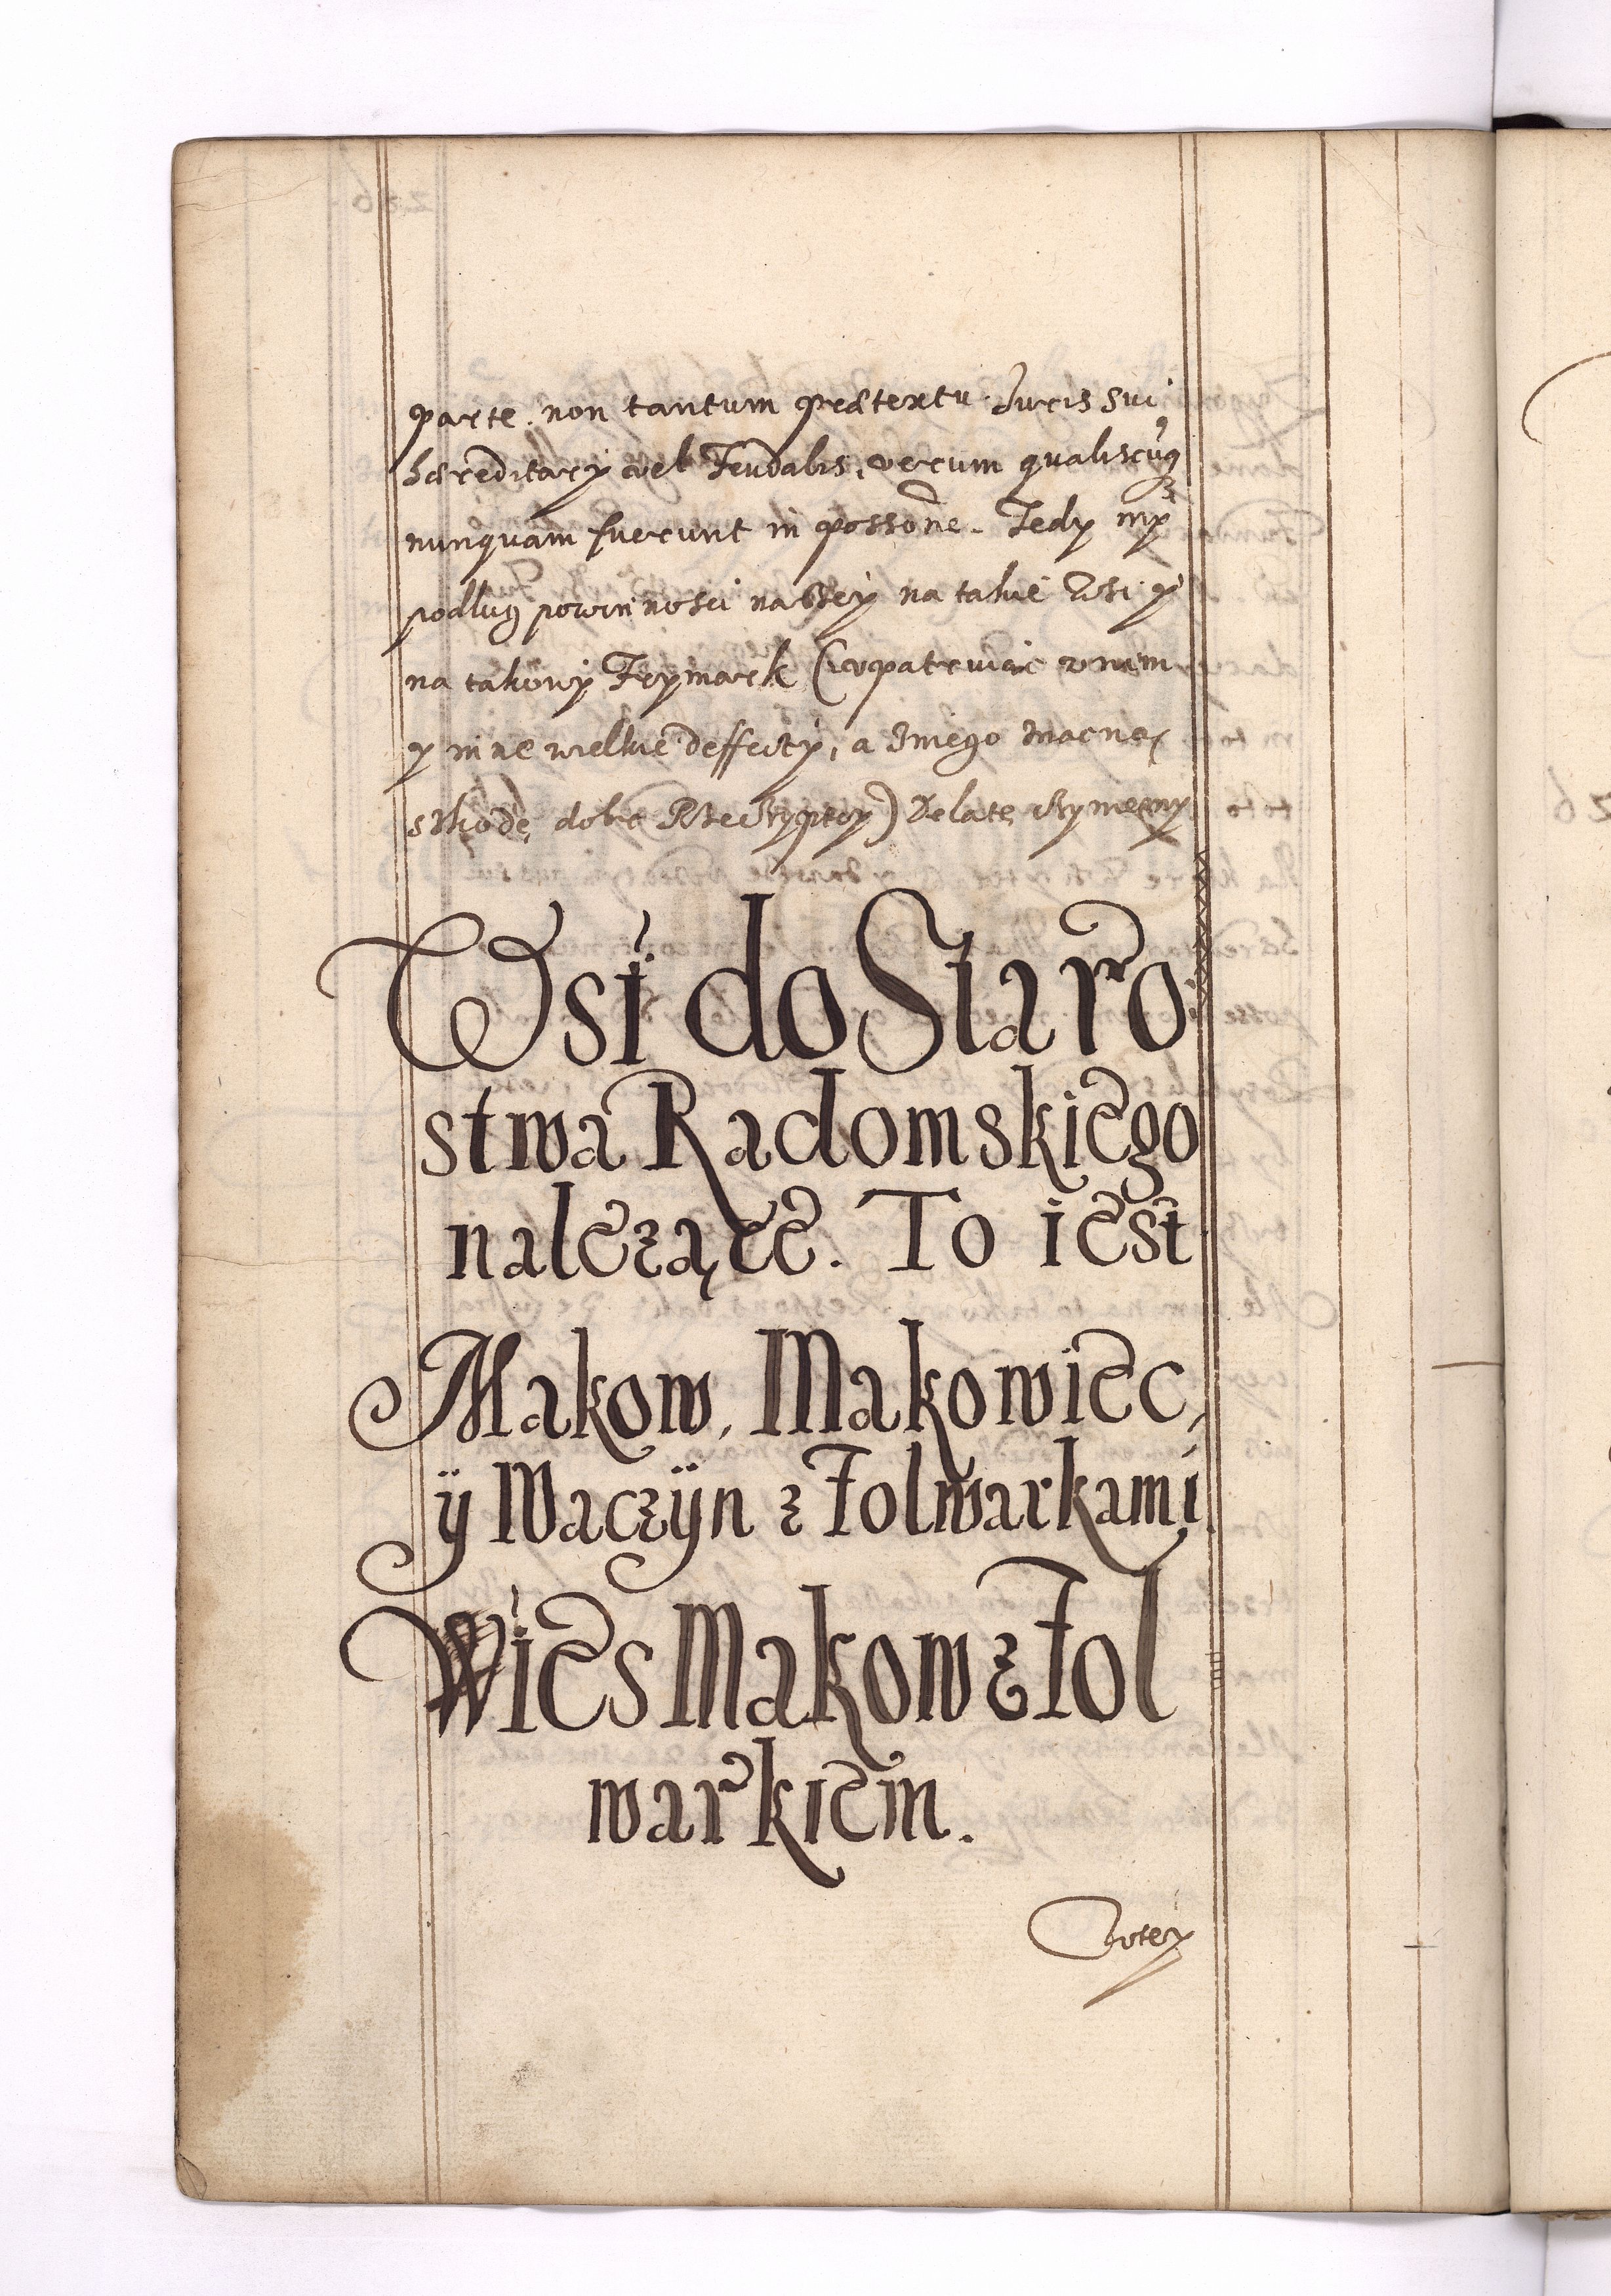 parte. non tantum prætextu Juris sui
hæreditarÿ vel Feudalis, verum qualiscũq3
nunquam fuerunt in possone. Tedy mÿ
podlug powinnosci naszeÿ na takie Wsi ÿ
na takowÿ Frymark (upatruiąc w nim
y inne wielkie deffectÿ, a zniego znaczną
szkodę dobr Rzeczypteÿ) Delatę czyniemÿ
Wsi do Staro
stwa Radomskiego
nalezące. To iest
Makow, Makowiec,
ÿ Waczÿn z Folwarkami
Wies Makow z Fol
warkiem.